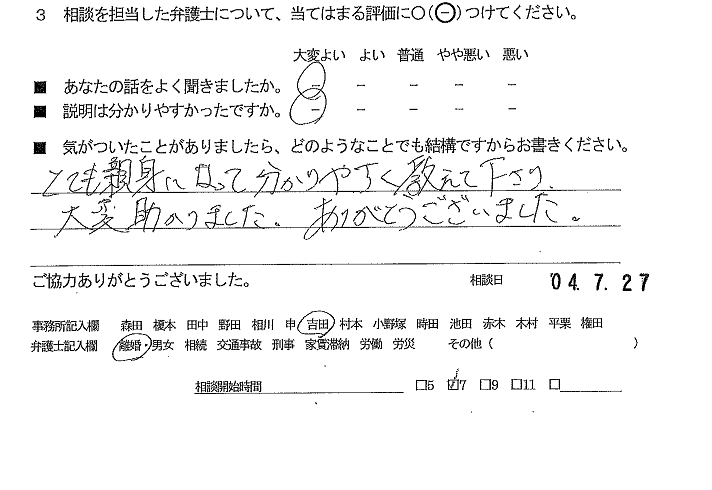 3 相談を担当した弁護士について、当てはまる評価に○(⊖)つけてください。
大変よい よい 普通 やや悪い 悪い
■ あなたの話をよく聞きましたか。 － － － － －
■ 説明は分かりやすかったですか。 － － － － －
■ 気がついたことがありましたら、どのようなことでも結構ですからお書きください。
とても親身になって分かりやすく教えて下さり、
大変助かりました。ありがとうございました。
ご協力ありがとうございました。 相談日 '04. 7. 27
事務所記入欄 森田 榎本 田中 野田 相川 申 吉田 村本 小野塚 時田 池田 赤木 木村 平栗 権田
弁護士記入欄 離婚・男女 相続 交通事故 刑事 家賃滞納 労働 労災 その他（ ）
相談開始時間 □5 ☑7 □9 □11 □